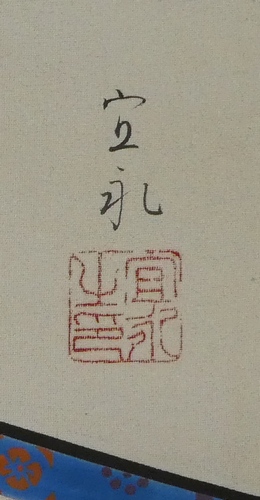 宜永
宜永
之印